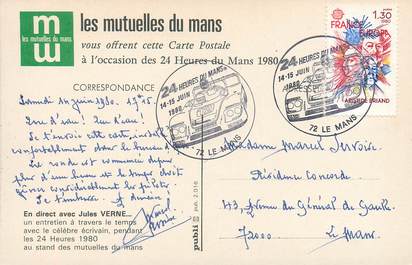 les mutuelles du mans
les mutuelles du mans
vous offrent cette Carte Postale
à l'occasion des 24 Heures du Mans 1980
CORRESPONDANCE
Samedi 14 juin 1980.
Que d'eau ! Que d'eau !
Je t'envoie cette carte,
confortablement dans le bureau
La ronde est commencée depuis
plus d'une heure et le temps
les pilotes.
En direct avec Jules VERNE...
un entretien à travers le temps
avec le célèbre écrivain, pendant
les 24 Heures 1980
au stand des mutuelles du mans
publi
24 HEURES DU MANS
14-15 JUIN
1980
72 LE MANS
24 HEURES DU MANS
14-15 JUIN
1980
72 LE MANS
1,30
FRANCE
EUROPA
ARISTIDE BRIAND
Madame Marcel Servoise
Résidence Concorde
43, Avenue du Général de Gaulle
72000 Le Mans